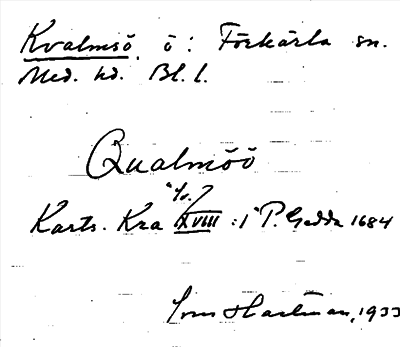 Kvalmsö ö: Förkärla sn.
Med. hd. Bl. l.
Qualmöö
Karts. Kra XVIII :1 P. Gedda 1684
Hartman, 1933